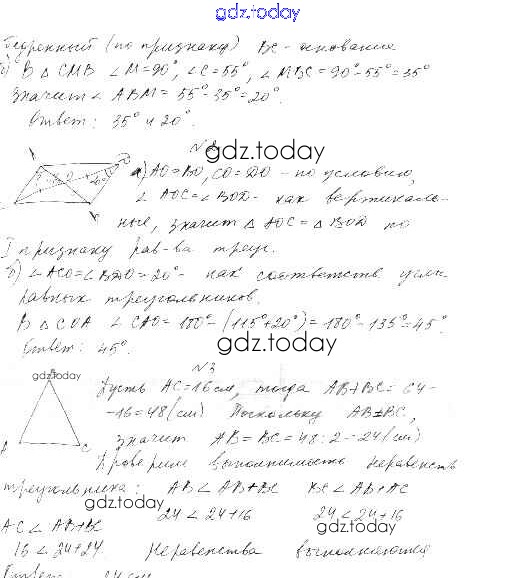 gdz.today
бедренный (по признаку) BC - основание
б) В △ CMB ∠M=90°, ∠C=55°, ∠MBC=90°-55°=35°
Значит ∠ABM=55°-35°=20°.
Ответ: 35° и 20°.
№2
gdz.today
а) AO=BO, CO=DO - по условию,
∠AOC=∠BOD - как вертикаль-
ные, значит △AOC=△BOD по
I признаку рав-ва треуг.
б) ∠ACO=∠BDO=20° - как соответств углы
равных треугольников.
В △COA ∠CAO=180°-(115°+20°)=180°-135°=45°
gdz.today
Ответ: 45°.
№3
gdz.today
Пусть AC=16см, тогда AB+BC=64-
-16=48(см) Поскольку AB=BC,
A C значит AB=BC=48:2=24(см)
Проверим выполнимость неравенств
треугольника: AB<AB+BC BC<AB+AC
gdz.today
24<24+16 24<24+16
AC<AB+BC
gdz.today
16<24+24. Неравенства выполняются
Ответ: 24см